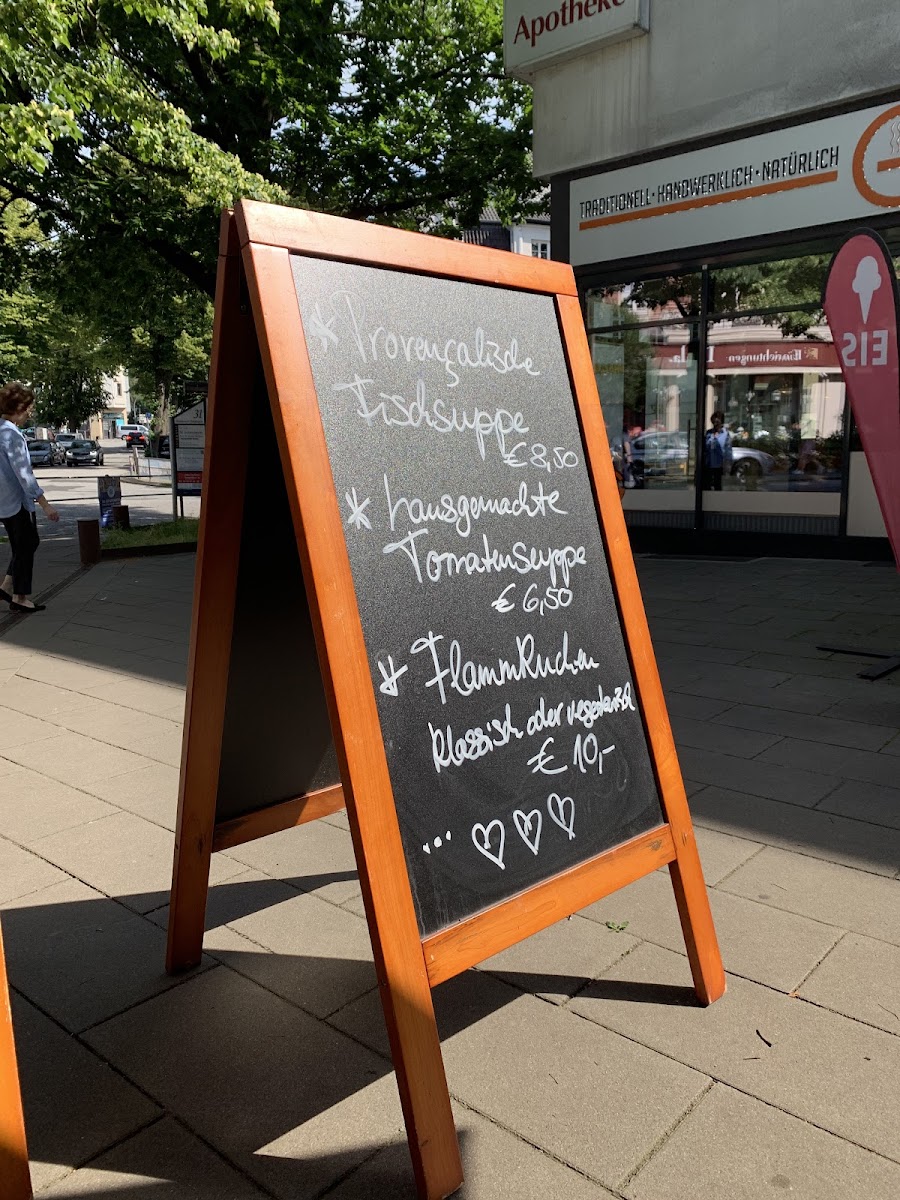 Apotheke
TRADITIONELL · HANDWERKLICH · NATÜRLICH
* Provençalische
Fischsuppe
€ 8,50
* hausgemachte
Tomatensuppe
€ 6,50
* Flammkuchen
klassisch oder vegetarisch
€ 10,-
...
EIS
Einrichtungen
31